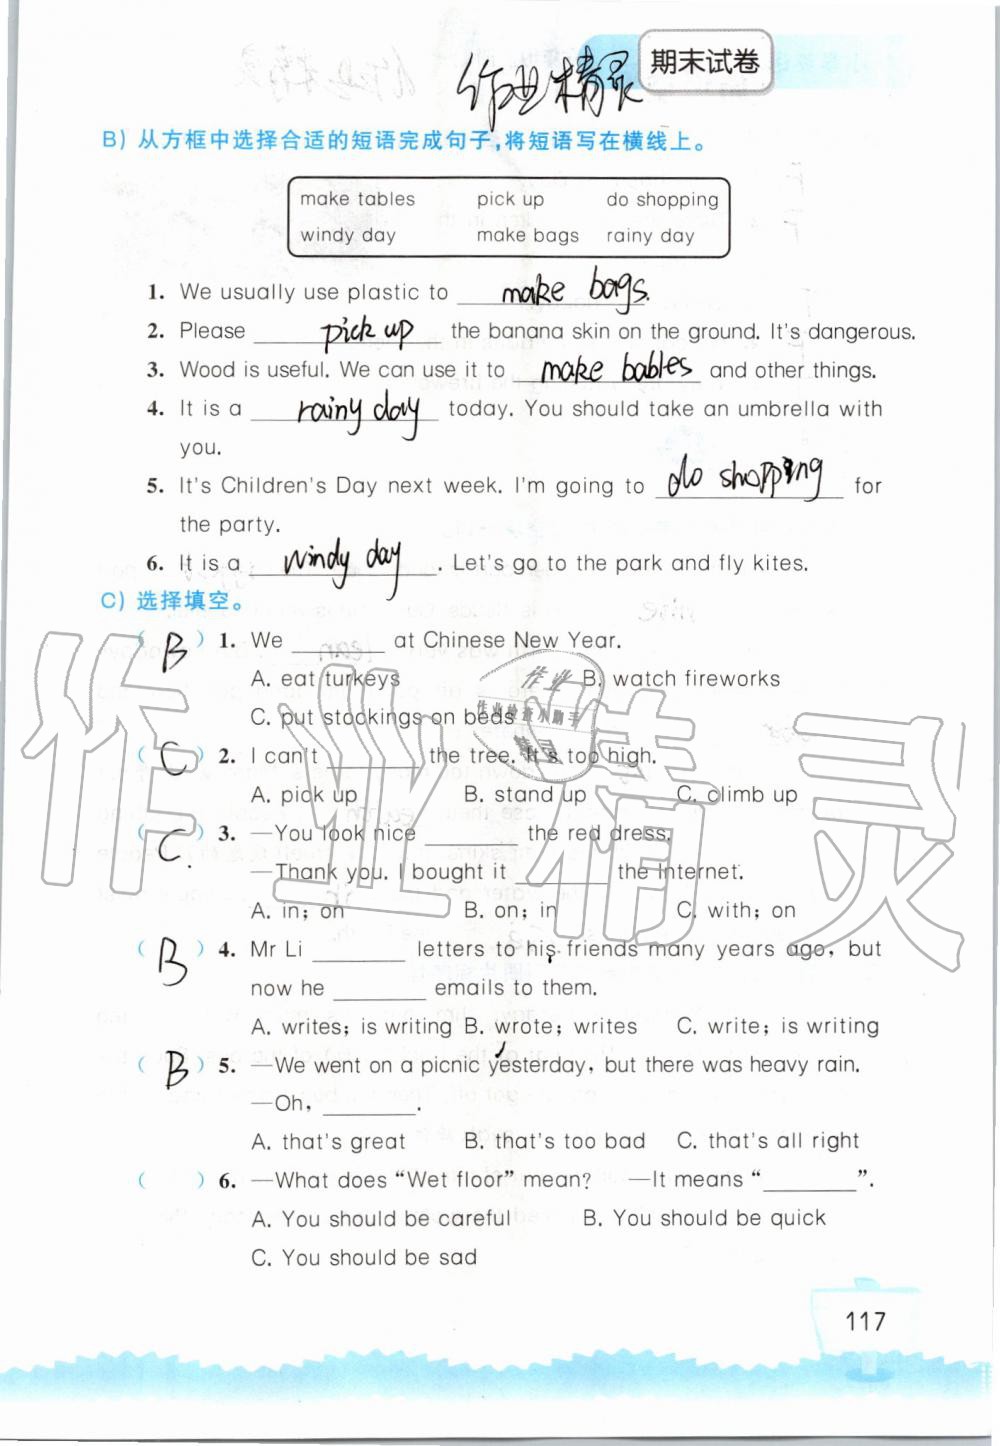 期末试卷
作业精灵
B) 从方框中选择合适的短语完成句子,将短语写在横线上。
make tables pick up do shopping
windy day make bags rainy day
1. We usually use plastic to make bags.
2. Please pick up the banana skin on the ground. It's dangerous.
3. Wood is useful. We can use it to make bables and other things.
4. It is a rainy day today. You should take an umbrella with
you.
5. It's Children's Day next week. I'm going to do shopping for
the party.
6. It is a windy day. Let's go to the park and fly kites.
C) 选择填空。
( B ) 1. We ________ at Chinese New Year.
A. eat turkeys B. watch fireworks
C. put stockings on beds
( C ) 2. I can't ________ the tree. It's too high.
A. pick up B. stand up C. climb up
( C. ) 3. —You look nice ________ the red dress.
—Thank you. I bought it ________ the Internet.
A. in; on B. on; in C. with; on
( B ) 4. Mr Li ________ letters to his friends many years ago, but
now he ________ emails to them.
A. writes; is writing B. wrote; writes C. write; is writing
( B ) 5. —We went on a picnic yesterday, but there was heavy rain.
—Oh, ________.
A. that's great B. that's too bad C. that's all right
( ) 6. —What does “Wet floor” mean? —It means “________”.
A. You should be careful B. You should be quick
C. You should be sad
作业精灵
作业
作业检查小助手
精灵
117